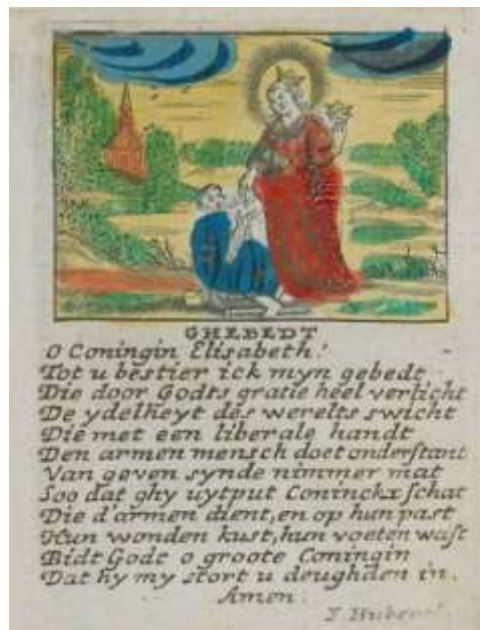 GHEBEDT
O Coningin Elisabeth!
Tot u bestier ick myn gebedt
Die door Godts gratie heel verlicht
De ydelheyt des werelts swicht
Die met een liberale handt
Den armen mensch doet onderstant
Van geven synde nimmer mat
Soo dat ghy uytput Coninckx schat
Die d'armen dient, en op hun past
Hun wonden kust, hun voeten wast
Bidt Godt o groote Coningin
Dat hy my stort u deughden in.
Amen.